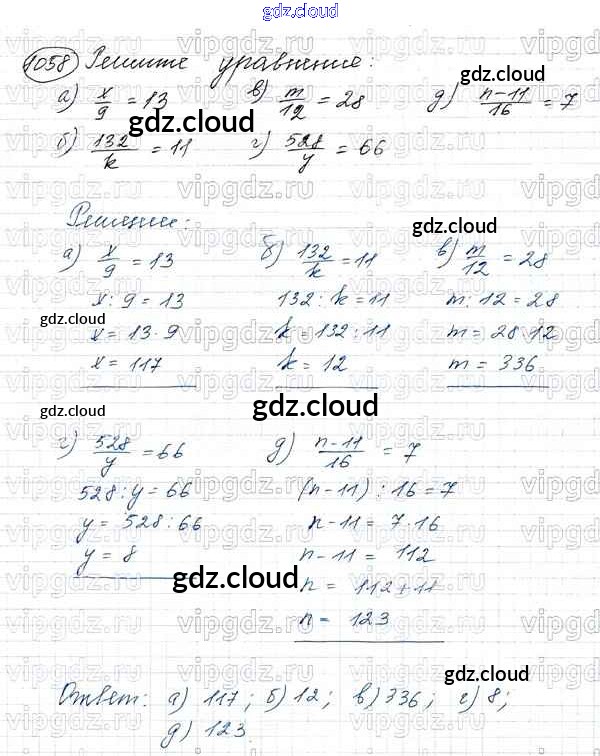 gdz.cloud
1058 Решите уравнение:
а) x/9 = 13 в) m/12 = 28 д) n-11/16 = 7
б) 132/k = 11 г) 528/y = 66
Решение:
а) x/9 = 13 б) 132/k = 11 в) m/12 = 28
x : 9 = 13 132 : k = 11 m : 12 = 28
x = 13 · 9 k = 132 : 11 m = 28 · 12
x = 117 k = 12 m = 336
г) 528/y = 66 д) n-11/16 = 7
528 : y = 66 (n-11) : 16 = 7
y = 528 : 66 n-11 = 7 · 16
y = 8 n-11 = 112
n = 112 + 11
n = 123
Ответ: а) 117; б) 12; в) 336; г) 8;
д) 123.
gdz.cloud
gdz.cloud
gdz.cloud
gdz.cloud
gdz.cloud
gdz.cloud
gdz.cloud
gdz.cloud
vipgdz.ru